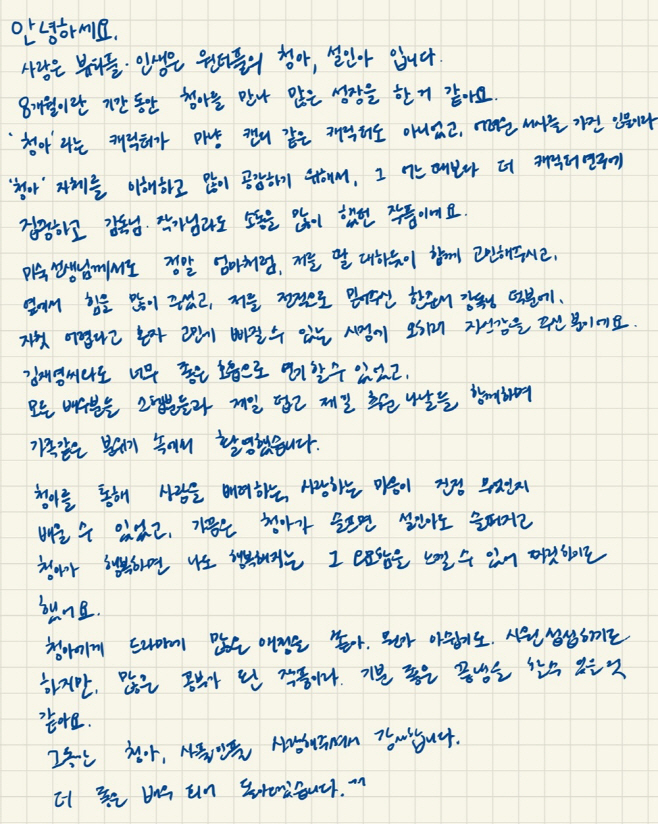 안녕하세요.
사랑은 뷰티풀·인생은 원더풀의 청아, 설인아 입니다.
8개월이란 기간 동안 청아를 만나 많은 성장을 한 거 같아요.
'청아'라는 캐릭터가 마냥 캔디 같은 캐릭터도 아니었고, 어려운 서사를 가진 인물이라
'청아' 자체를 이해하고 많이 공감하기 위해서, 그 어느때보다 더 캐릭터연구에
집중하고 감독님·작가님과도 소통을 많이 했던 작품이에요.
미숙선생님께서도 정말 엄마처럼, 저를 딸 대하듯이 함께 고민해주시고,
옆에서 힘을 많이 주셨고, 저를 전적으로 믿어주신 한준서 감독님 덕분에,
자칫 어렵다고 혼자 고민에 빠질수 있는 시점에 오히려 자신감을 주신 분이에요.
김재영씨와도 너무 좋은 호흡으로 연기할수 있었고,
모든 배우분들 스텝분들과 제일 덥고 제일 추운 나날들 함께하며
가족같은 분위기 속에서 촬영했습니다.
청아를 통해 사람을 배려하는, 사랑하는 마음이 진정 무엇인지
배울 수 있었고, 가끔은 청아가 슬프면 설인아도 슬퍼지고
청아가 행복하면 나도 행복해지는 그 묘함을 느낄 수 있어 짜릿하기도
했어요.
청아에게 드라마에 많은 애정을 쏟아. 뭔가 아쉽기도. 시원 섭섭하기도
하지만, 많은 공부가 된 작품이라. 기분 좋은 끝냄을 할수 있을 것
같아요.
그동안 청아, 사풀인풀 사랑해주셔서 감사합니다.
더 좋은 배우 되어 돌아오겠습니다.^^